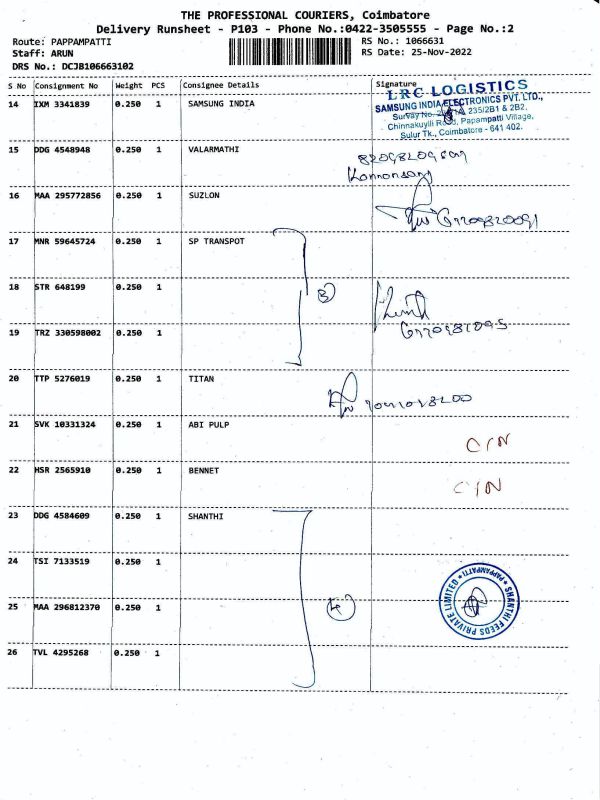 THE PROFESSIONAL COURIERS, Coimbatore
Delivery Runsheet - P103 - Phone No.:0422-3505555 - Page No.:2
Route: PAPPAMPATTI
RS No.: 1066631
Staff: ARUN
RS Date: 25-Nov-2022
DRS No.: DCJB106663102
S No Consignment No Weight PCS Consignee Details Signature
LRC LOGISTICS
14 IXM 3341839 0.250 1 SAMSUNG INDIA
SAMSUNG INDIA ELECTRONICS PVT. LTD.,
Survay No. 235/2B1 & 2B2,
Chinnakuyili Road, Papampatti Village,
Sulur Tk., Coimbatore - 641 402.
15 DDG 4548948 0.250 1 VALARMATHI
16 MAA 295772856 0.250 1 SUZLON
17 MNR 59645724 0.250 1 SP TRANSPOT
18 STR 648199 0.250 1
3
19 TRZ 330598002 0.250 1
20 TTP 5276019 0.250 1 TITAN
21 SVK 10331324 0.250 1 ABI PULP
C/N
22 HSR 2565910 0.250 1 BENNET
C/N
23 DDG 4584609 0.250 1 SHANTHI
24 TSI 7133519 0.250 1
25 MAA 296812370 0.250 1
4
SHANTHI FEEDS PRIVATE LIMITED * PAPPAMPATTI *
26 TVL 4295268 0.250 1